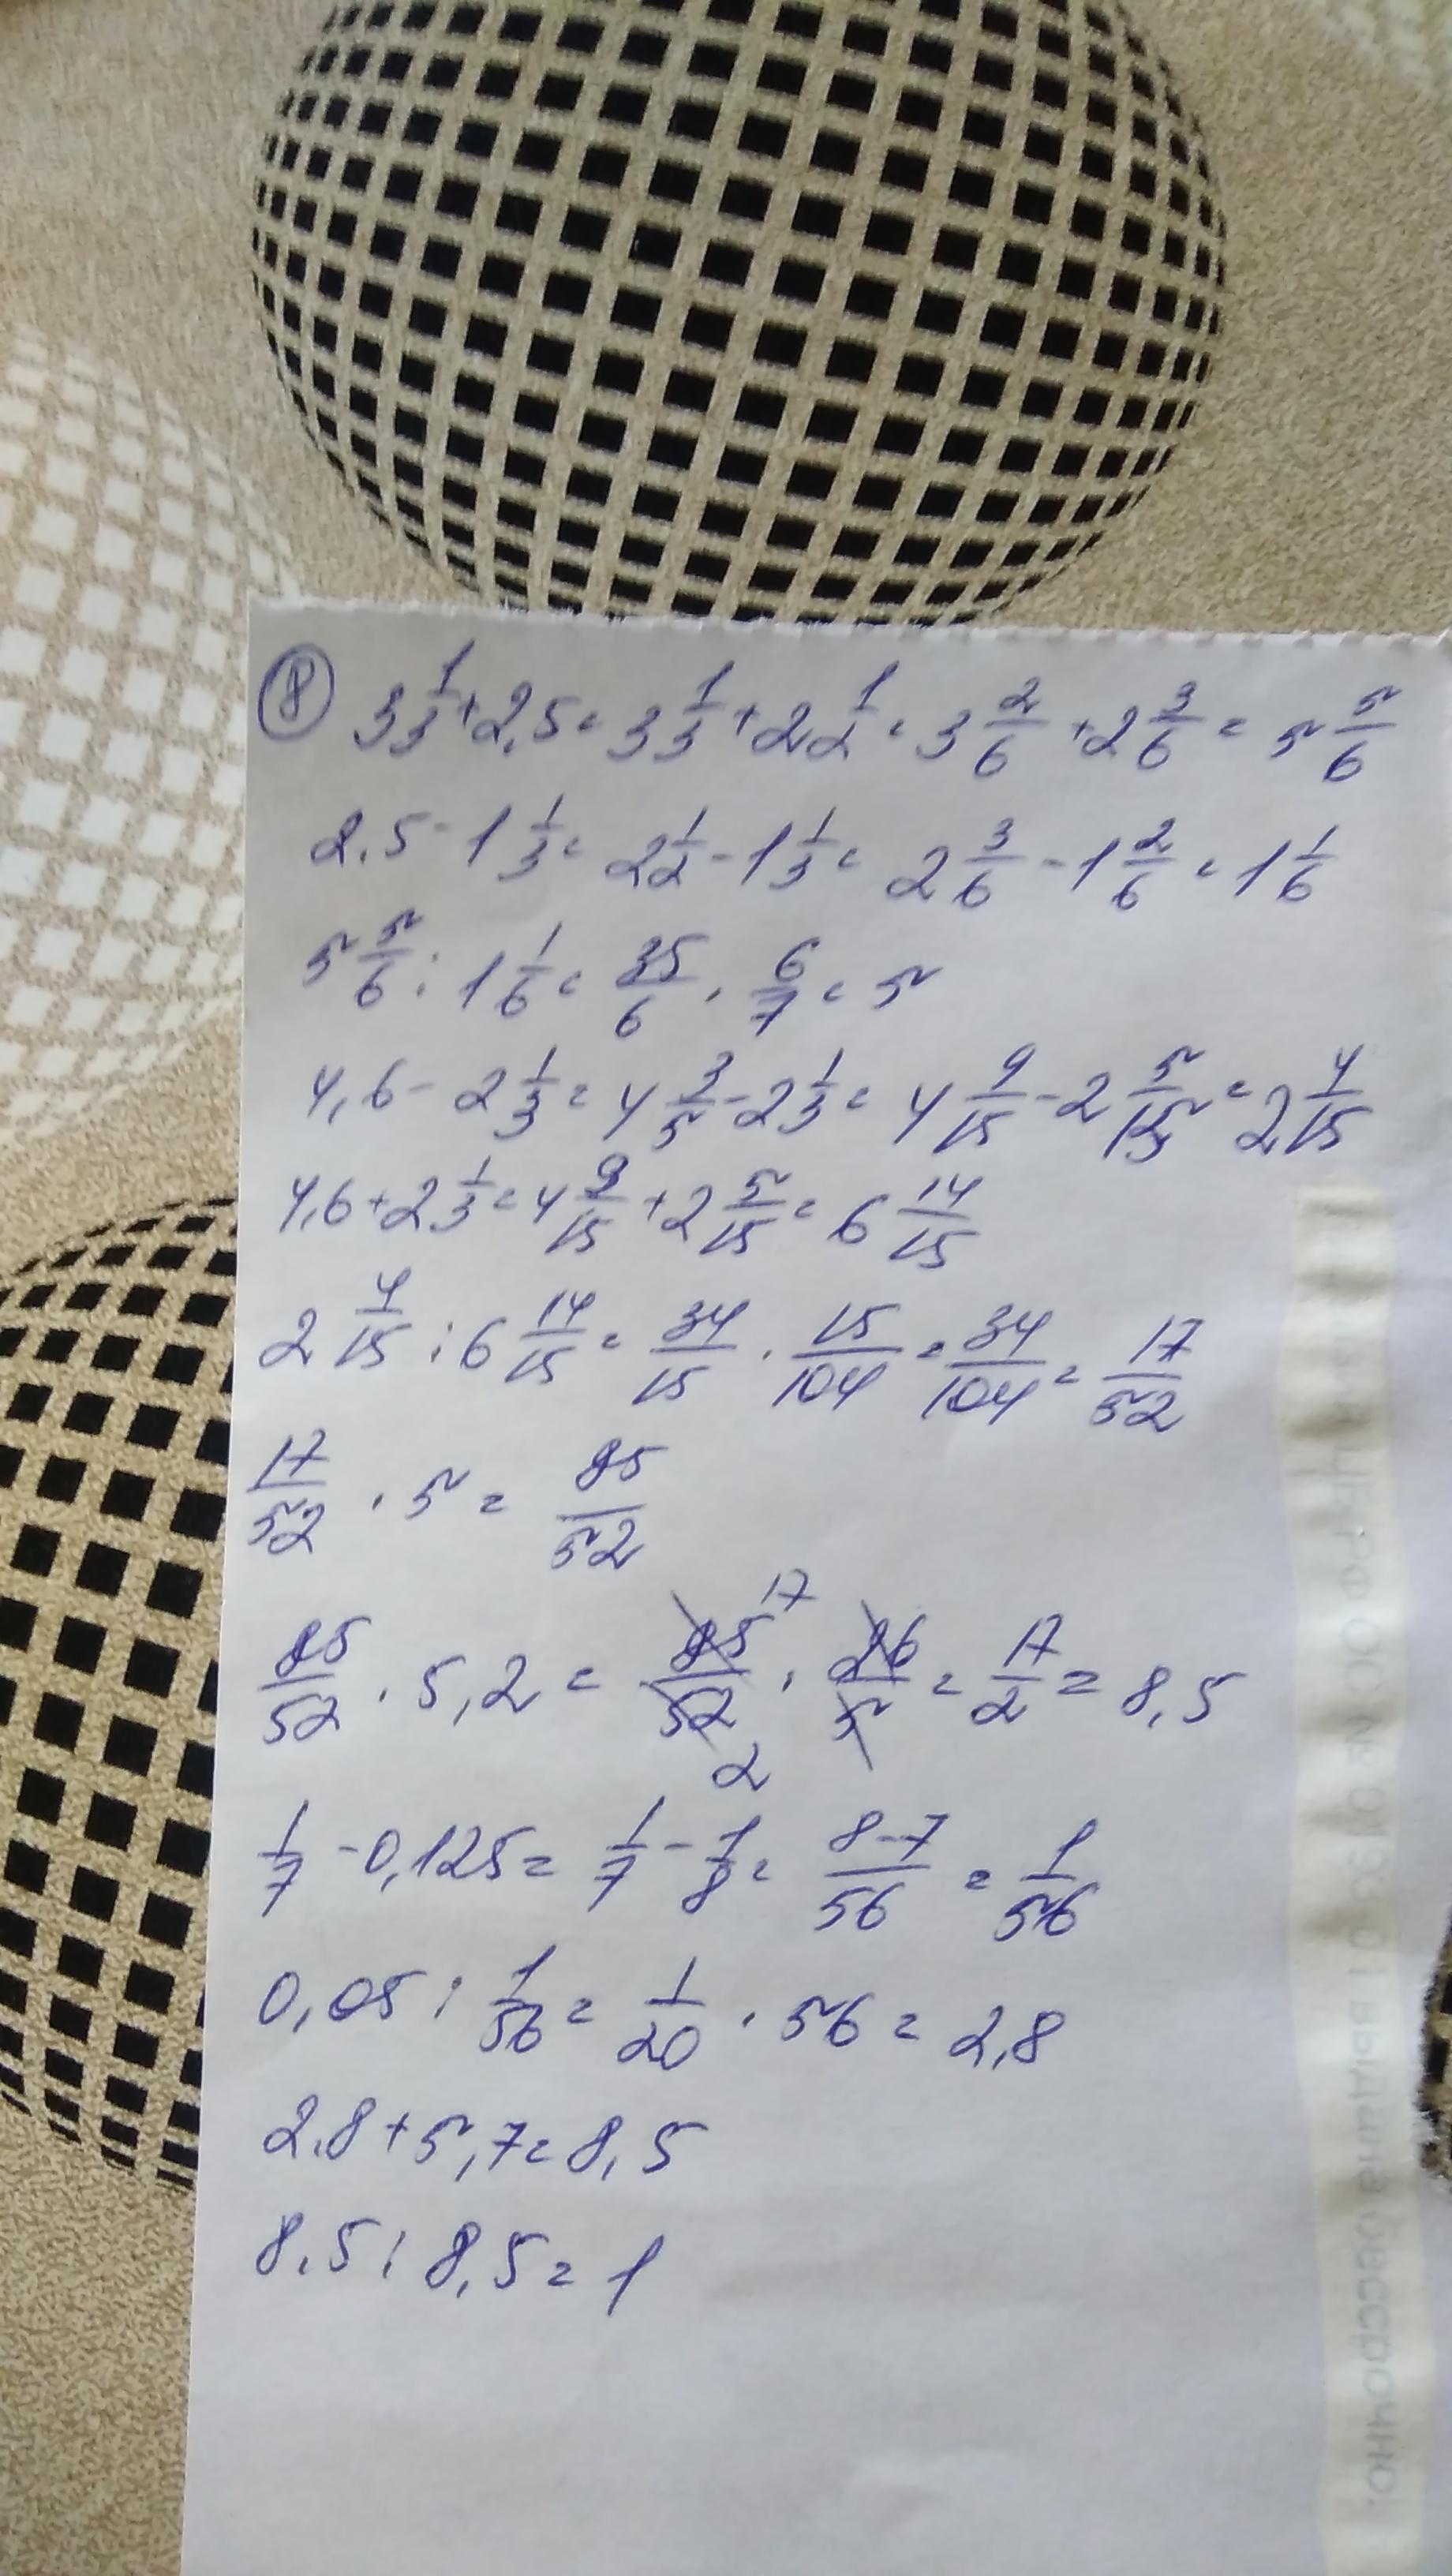 ⑧ 3 1/3 + 2,5 = 3 1/3 + 2 1/2 = 3 2/6 + 2 3/6 = 5 5/6
2,5 - 1 1/3 = 2 1/2 - 1 1/3 = 2 3/6 - 1 2/6 = 1 1/6
5 5/6 : 1 1/6 = 35/6 · 6/7 = 5
4,6 - 2 1/3 = 4 3/5 - 2 1/3 = 4 9/15 - 2 5/15 = 2 4/15
4,6 + 2 1/3 = 4 9/15 + 2 5/15 = 6 14/15
2 4/15 : 6 14/15 = 34/15 · 15/104 = 34/104 = 17/52
17/52 · 5 = 85/52
85/52 · 5,2 = 85/52 17 2 · 26/5 = 17/2 = 8,5
1/7 - 0,125 = 1/7 - 1/8 = 8-7/56 = 1/56
0,05 : 1/56 = 1/20 · 56 = 2,8
2,8 + 5,7 = 8,5
8,5 : 8,5 = 1